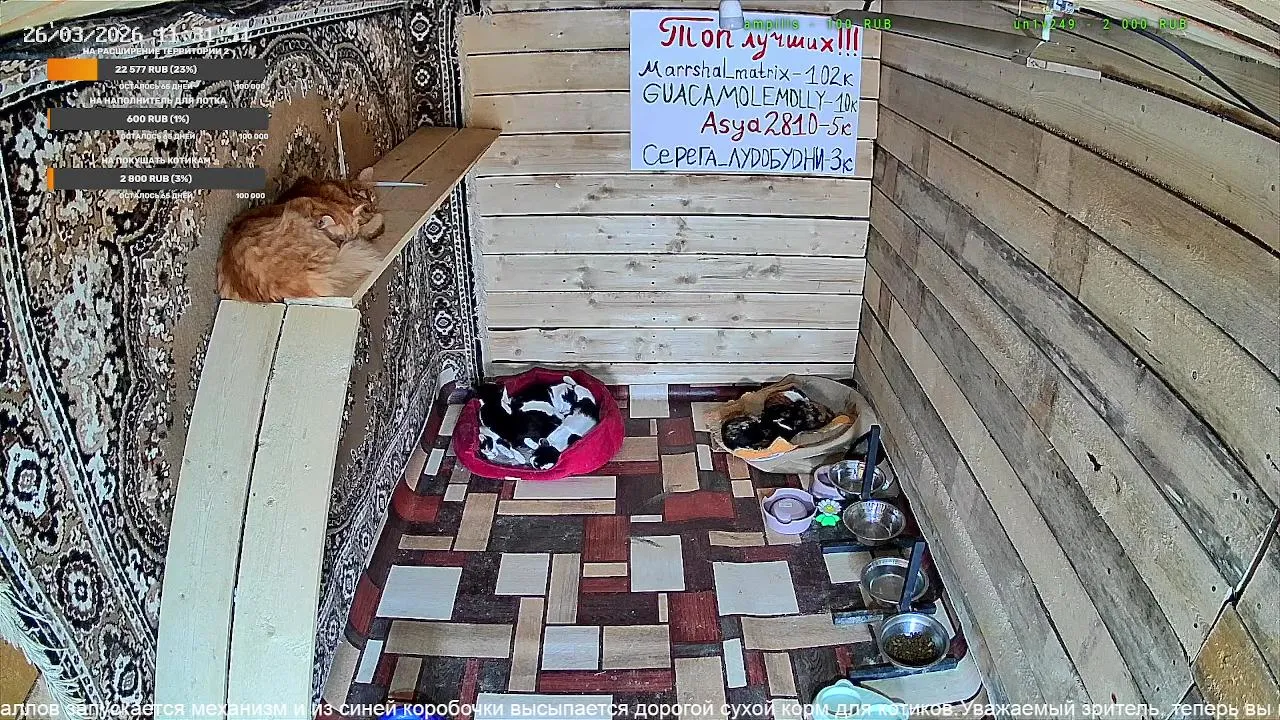 26/03/2026 11:31:51
НА РАСШИРЕНИЕ ТЕРРИТОРИИ 2
22 577 RUB (23%)
0 ОСТАЛОСЬ 65 ДНЕЙ 100 000
НА НАПОЛНИТЕЛЬ ДЛЯ ЛОТКА
600 RUB (1%)
0 ОСТАЛОСЬ 65 ДНЕЙ 100 000
НА ПОКУШАТЬ КОТИКАМ
2 800 RUB (3%)
0 ОСТАЛОСЬ 65 ДНЕЙ 100 000
ampills - 100 RUB
un1v249 - 2 000 RUB
Топ лучших!!!
Marrshal_matrix-102к
GUACAMOLEMOLLY-10к
Asya2810-5к
СЕРЕГА_ЛУДОБУДНИ-3к
аллов запускается механизм и из синей коробочки высыпается дорогой сухой корм для котиков.Уважаемый зритель, теперь вы